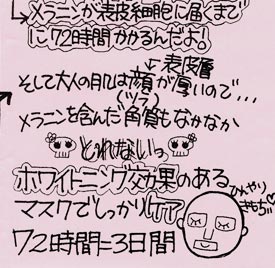 ↳メラニンが表皮細胞に届くまで
に72時間かかるんだよ!
↳表皮層
そして大人の肌は顔が厚いので・・・
(ツラ)
メラニンを含んだ角質もなかなか
とれないっ
ホワイトニング効果のある
マスクでしっかりケア
ひんやり
きもち♡
72時間=3日間